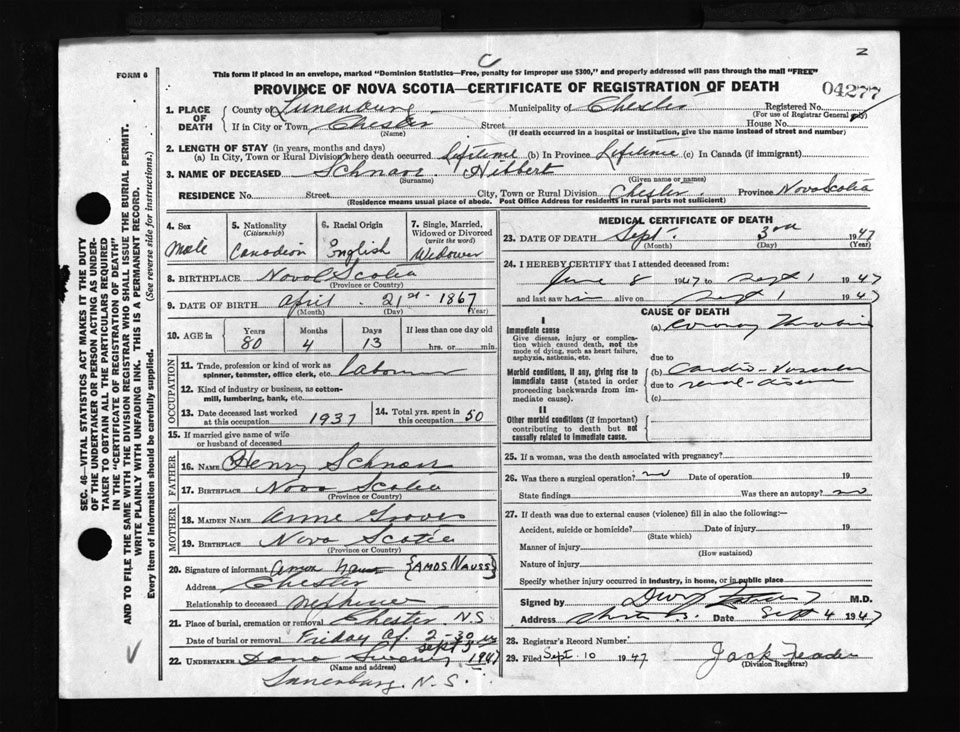 C
2
FORM 6
This form if placed in an envelope, marked "Dominion Statistics—Free, penalty for improper use $300," and properly addressed will pass through the mail "FREE"
PROVINCE OF NOVA SCOTIA—CERTIFICATE OF REGISTRATION OF DEATH
04277
1. PLACE OF DEATH
County of Lunenburg Municipality of Chester Registered No.
(For use of Registrar General only)
If in City or Town Chester Street House No.
(Name) (If death occurred in a hospital or institution, give the name instead of street and number)
2. LENGTH OF STAY (in years, months and days)
(a) In City, Town or Rural Division where death occurred Lifetime (b) In Province Lifetime (c) In Canada (if immigrant)
3. NAME OF DECEASED Schnare Hibbert
(Surname) (Given name or names)
RESIDENCE No. Street City, Town or Rural Division Chester Province Nova Scotia
(Residence means usual place of abode. Post Office Address for residents in rural parts not sufficient)
4. Sex
Male
5. Nationality
(Citizenship)
Canadian
6. Racial Origin
English
7. Single, Married, Widowed or Divorced
(write the word)
Widower
8. BIRTHPLACE Nova Scotia
(Province or Country)
9. DATE OF BIRTH April 21st 1867
(Month) (Day) (Year)
10. AGE in
Years Months Days If less than one day old
80 4 13 hrs. or min.
OCCUPATION
11. Trade, profession or kind of work as
spinner, teamster, office clerk, etc. Labourer
12. Kind of industry or business, as cotton-
mill, lumbering, bank, etc.
13. Date deceased last worked
at this occupation 1937
14. Total yrs. spent in
this occupation 50
15. If married give name of wife
or husband of deceased
FATHER
16. NAME Henry Schnare
17. BIRTHPLACE Nova Scotia
(Province or Country)
MOTHER
18. MAIDEN NAME Anne Groves
19. BIRTHPLACE Nova Scotia
(Province or Country)
20. Signature of informant Amos Nauss {AMOS NAUSS}
Address Chester
Relationship to deceased
21. Place of burial, cremation or removal Chester N.S
Date of burial or removal Friday Af. 2-30
Sept 5
22. UNDERTAKER 1947
(Name and address)
Lunenburg. N.S.
MEDICAL CERTIFICATE OF DEATH
23. DATE OF DEATH Sept. 3rd 1947
(Month) (Day) (Year)
24. I HEREBY CERTIFY that I attended deceased from:
June 8 1947 to Sept 1 1947
and last saw him alive on Sept 1 1947
CAUSE OF DEATH
I
Immediate cause
Give disease, injury or complica-
tion which caused death, not the
mode of dying, such as heart failure,
asphyxia, asthenia, etc.
(a)
due to
Morbid conditions, if any, giving rise to
immediate cause (stated in order
proceeding backwards from im-
mediate cause).
(b) Cardio-Vascular
due to renal-disease
(c)
II
Other morbid conditions (if important)
contributing to death but not
causally related to immediate cause.
25. If a woman, was the death associated with pregnancy?
26. Was there a surgical operation? no Date of operation 19
State findings Was there an autopsy? no
27. If death was due to external causes (violence) fill in also the following:—
Accident, suicide or homicide? Date of injury 19
(State which)
Manner of injury
(How sustained)
Nature of injury
Specify whether injury occurred in industry, in home, or in public place
Signed by M.D.
Address Date Sept 4 1947
28. Registrar's Record Number
29. Filed Sept. 10 1947 Jack
(Division Registrar)
SEC. 46—VITAL STATISTICS ACT MAKES IT THE DUTY
OF THE UNDERTAKER OR PERSON ACTING AS UNDER-
TAKER TO OBTAIN ALL THE PARTICULARS REQUIRED
IN THE "CERTIFICATE OF REGISTRATION OF DEATH"
AND TO FILE THE SAME WITH THE DIVISION REGISTRAR WHO SHALL ISSUE THE BURIAL PERMIT.
WRITE PLAINLY WITH UNFADING INK. THIS IS A PERMANENT RECORD.
Every item of information should be carefully supplied. (See reverse side for instructions.)